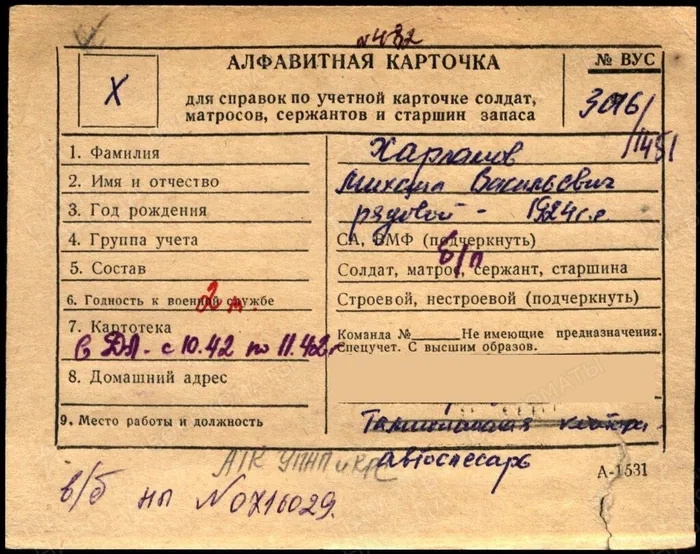 №482
АЛФАВИТНАЯ КАРТОЧКА
№ ВУС
Х
для справок по учетной карточке солдат,
матросов, сержантов и старшин запаса
1. Фамилия
Харламов
2. Имя и отчество
Михаил Васильевич
3. Год рождения
рядовой - 1924 г.р
4. Группа учета
СА, ВМФ (подчеркнуть)
5. Состав
б/п
Солдат, матрос, сержант, старшина
6. Годность к военной службе
2
Строевой, нестроевой (подчеркнуть)
7. Картотека
Команда № Не имеющие предназначения.
в ДА - с 10.42 по 11.42 г
Спецучет. С высшим образов.
8. Домашний адрес
9. Место работы и должность
автослесарь
А-1531
в/б НЫ №0716029.